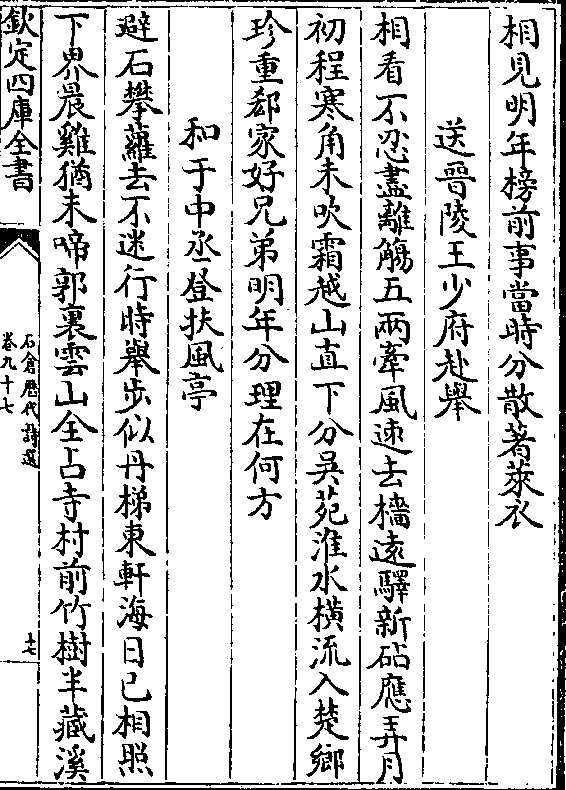 相見明年榜前事當時分散著萊衣
送晉陵王少府赴舉
相看不忍盡離觴五兩牽風速去檣逺驛新砧應弄月
初程寒角未吹霜越山直下分吳苑淮水橫流入楚鄉
珍重郄家好兄弟明年分理在何方
和于中丞登扶風亭
避石攀蘿去不迷行時舉步似丹梯東軒海日已相照
下界晨雞猶未啼郭裏雲山全占寺村前竹樹半藏溪
欽定四庫全書
石倉歴代詩選
卷九十七
十七